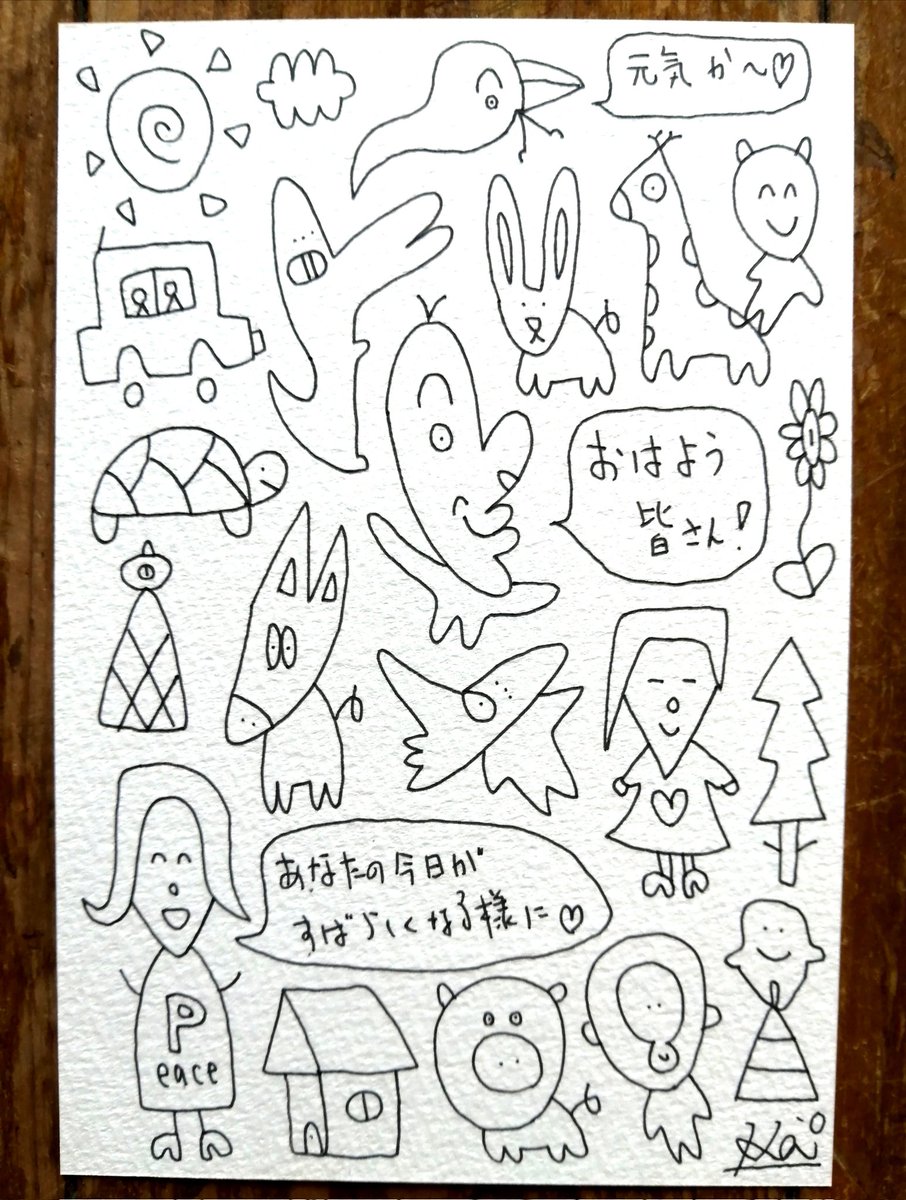 元気か〜♡
おはよう
皆さん!
あなたの今日が
すばらしくなる様に♡
P
eace